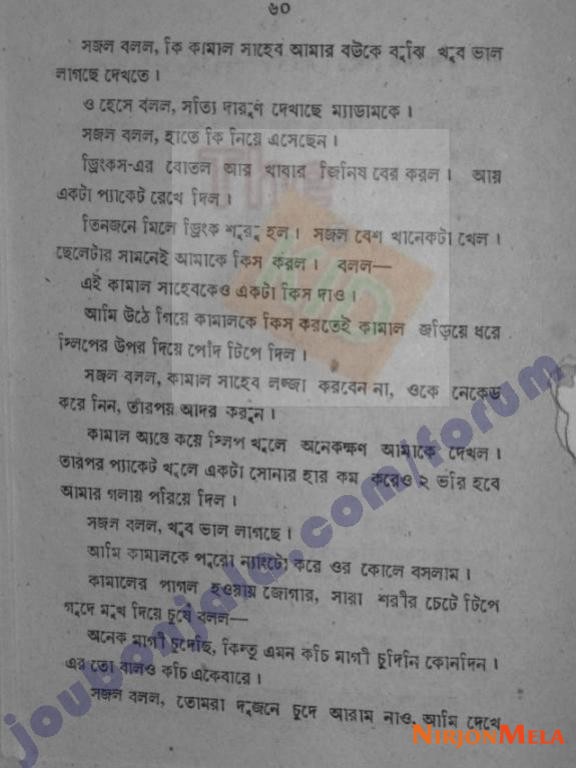 ৬০
সজল বলল, কি কামাল সাহেব আমার বউকে বুঝি খুব ভাল
লাগছে দেখতে।
ও হেসে বলল, সত্যি দারুণ দেখাছে ম্যাডামকে।
সজল বলল, হাতে কি নিয়ে এসেছেন।
ড্রিংকস-এর বোতল আর খাবার জিনিষ বের করল। আয়
একটা প্যাকেট রেখে দিল।
তিনজনে মিলে ড্রিংক শুরু হল। সজল বেশ খানেকটা খেল।
ছেলেটার সামনেই আমাকে কিস করল। বলল—
এই কামাল সাহেবকেও একটা কিস দাও।
আমি উঠে গিয়ে কামালকে কিস করতেই কামাল জড়িয়ে ধরে
স্লিপের উপর দিয়ে পোঁদ টিপে দিল।
সজল বলল, কামাল সাহেব লজ্জা করবেন না, ওকে নেকেড
করে নিন, তারপয় আদর করুন।
কামাল আস্তে কয়ে স্লিপ খুলে অনেকক্ষণ আমাকে দেখল।
তারপর প্যাকেট খুলে একটা সোনার হার কম করেও ২ ভরি হবে
আমার গলায় পরিয়ে দিল।
সজল বলল, খুব ভাল লাগছে।
আমি কামালকে পুরো ন্যাংটো করে ওর কোলে বসলাম।
কামালের পাগল হওয়ায় জোগার, সারা শরীর চেটে টিপে
গুদে মুখ দিয়ে চুষে বলল—
অনেক মাগী চুদেছি, কিন্তু এমন কচি মাগী চুদিনি কোনদিন।
এর তো বালও কচি একেবারে।
সজল বলল, তোমরা দুজনে চুদে আরাম নাও, আমি দেখে
The
KID
joubonjala.com/forum
NIRJONMELA